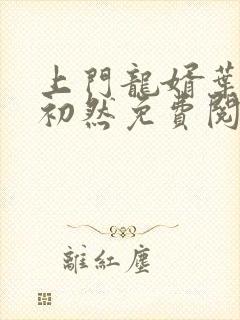 上門龍婿葉
初然免費閱
離紅塵